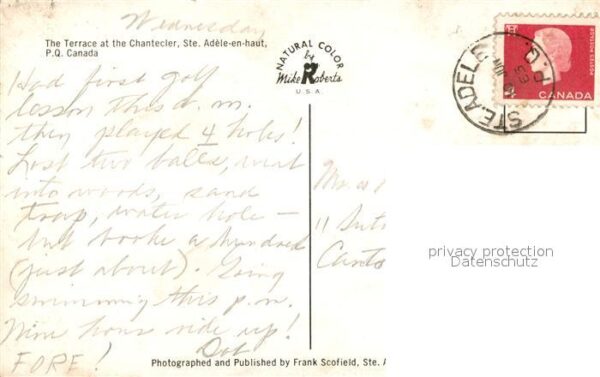 Wednesday
The Terrace at the Chantecler, Ste. Adèle-en-haut,
P.Q. Canada
Had first golf
lesson this a.m.
then played 4 holes!
Lost two balls, went
into woods, sand
trap, water hole —
but broke a hundred
(just about). Going
swimming this p.m.
Nine hour ride up!
Dot
FORE!
NATURAL COLOR
by
Mike Roberts
U.S.A.
STE. ADELE
P.Q.
CANADA
Mr. &
11
Canto
privacy protection
Datenschutz
Photographed and Published by Frank Scofield, Ste. A